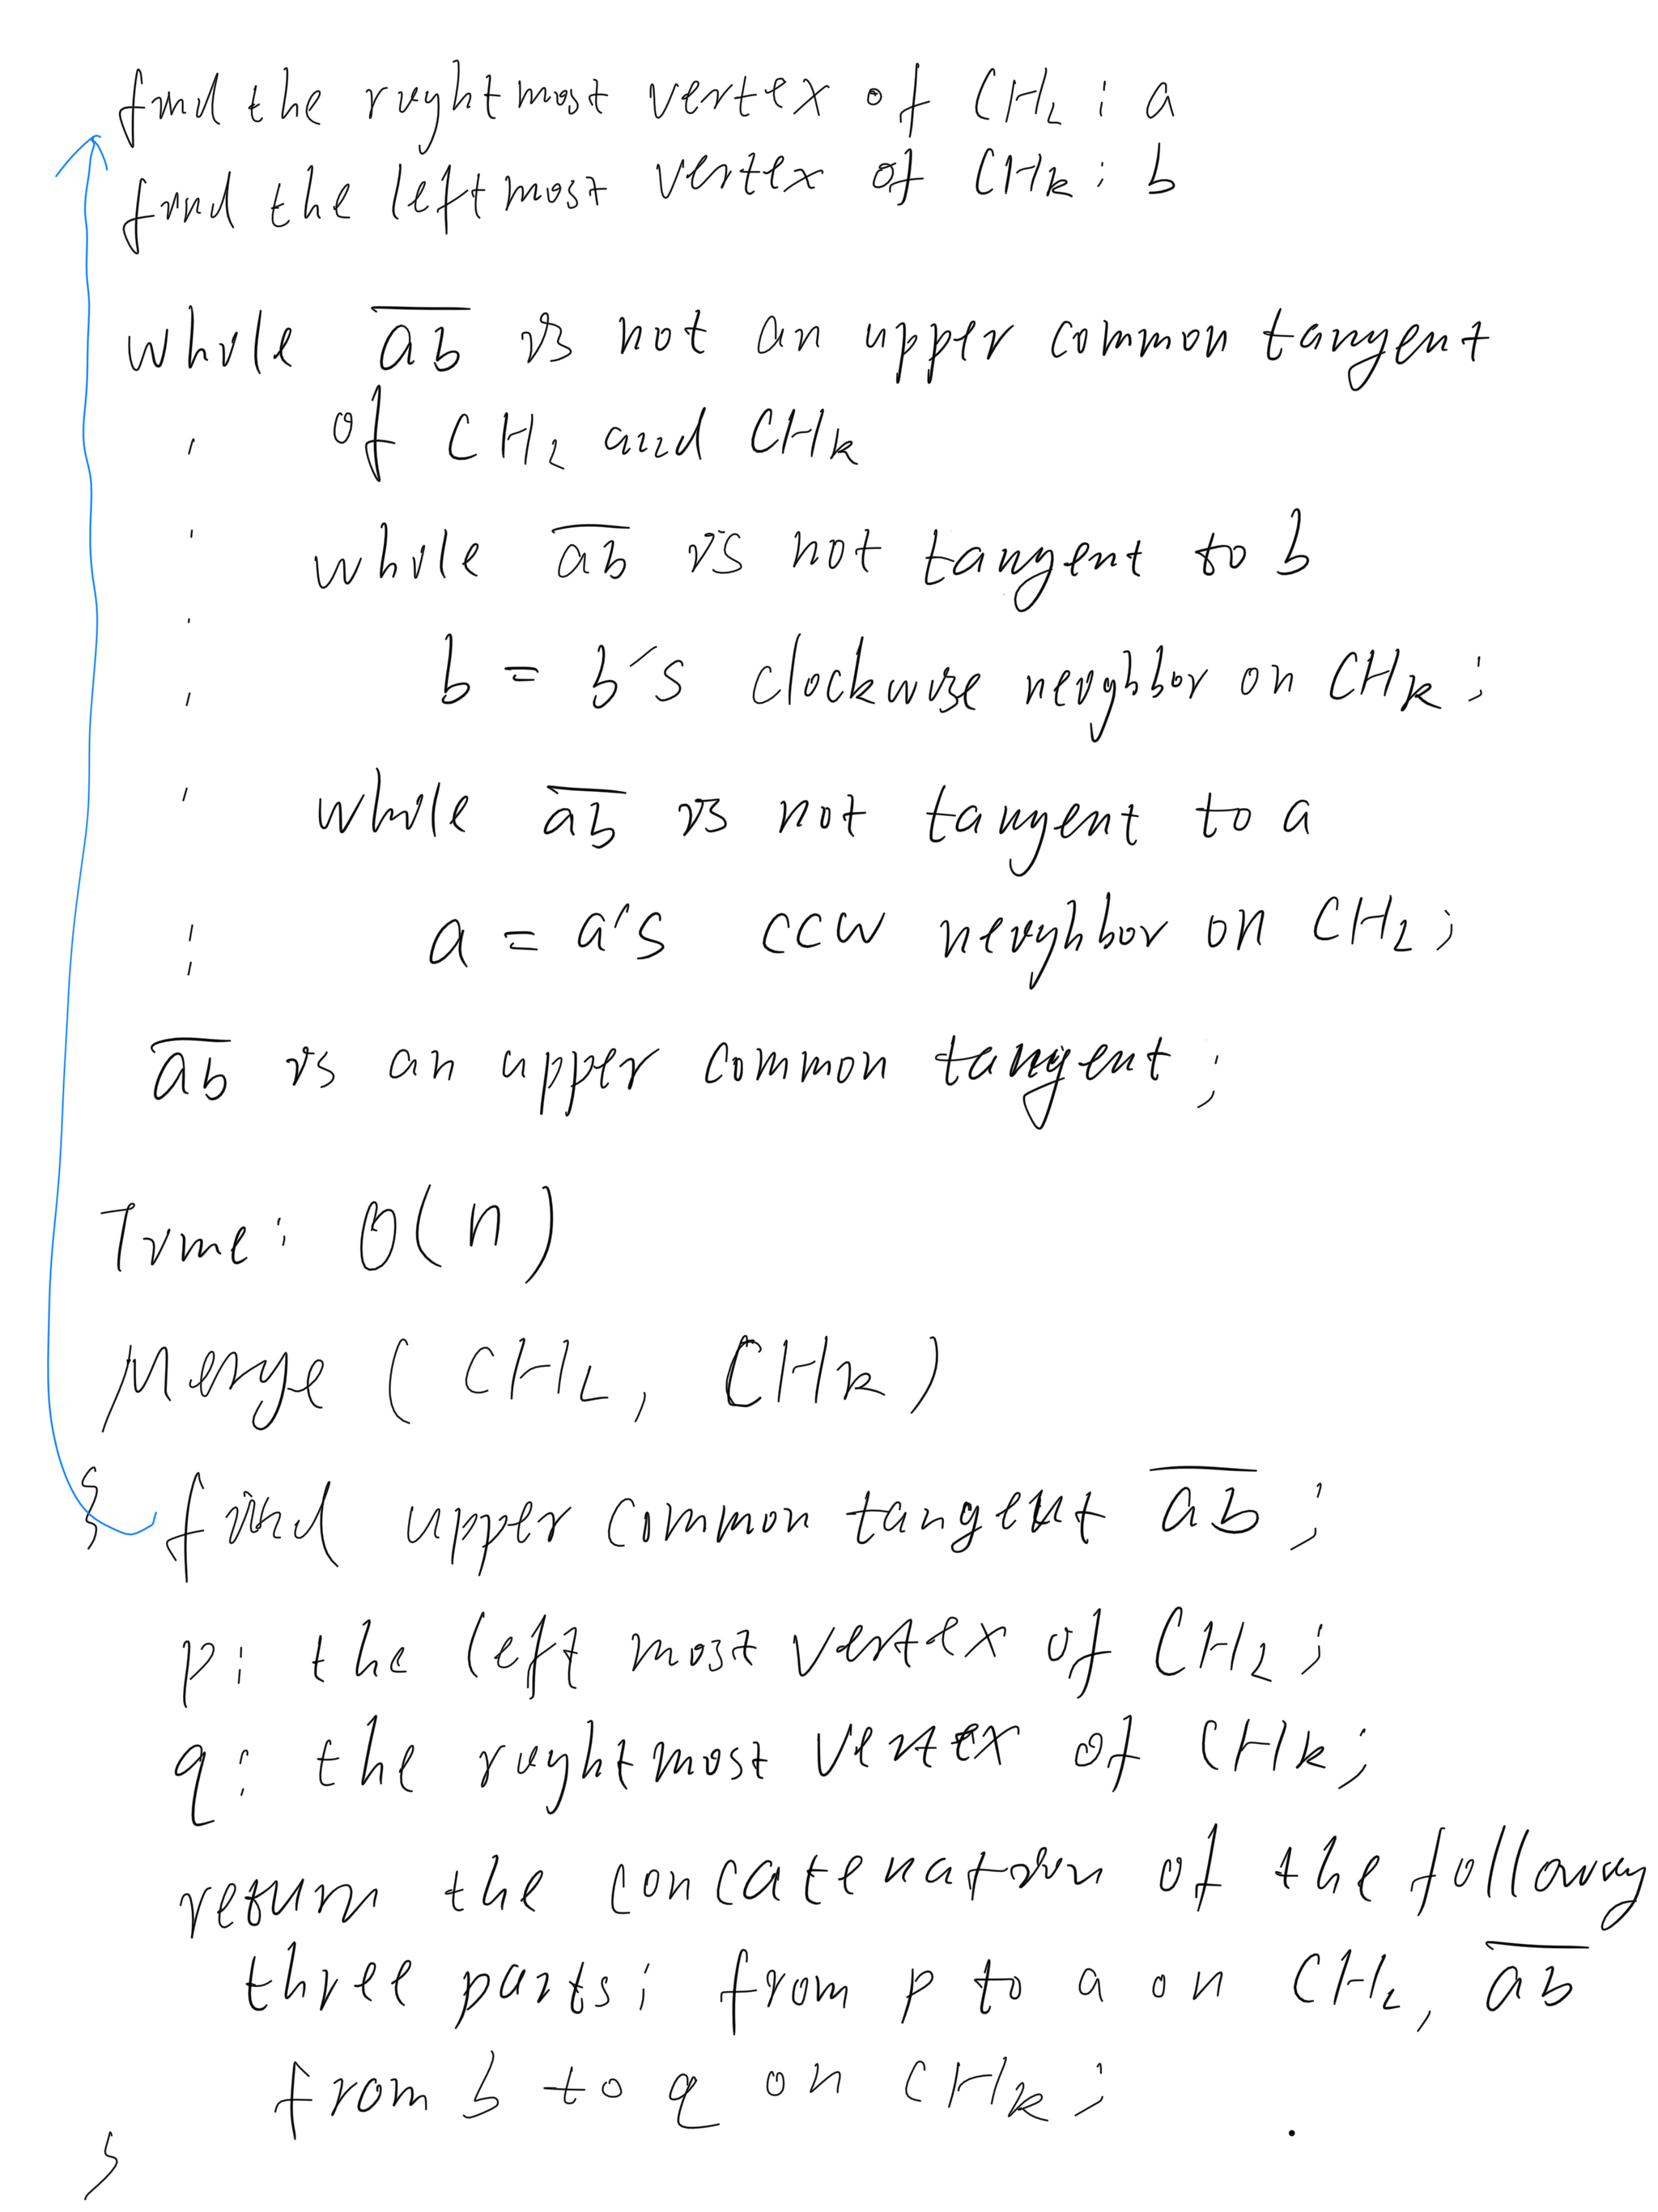 find the rightmost vertex of CHL : a
find the leftmost vertex of CHR : b
while a̅b̅ is not an upper common tangent
of CHL and CHR
while a̅b̅ is not tangent to b
b = b's clockwise neighbor on CHR ;
while a̅b̅ is not tangent to a
a = a's ccw neighbor on CHL ;
a̅b̅ is an upper common tangent ;
Time : O(n)
Merge ( CHL, CHR )
{ find upper common tangent a̅b̅ ;
p : the left most vertex of CHL ;
q : the rightmost vertex of CHR ;
return the concatenation of the following
three parts ; from p to a on CHL, a̅b̅
from b to q on CHR ;
}